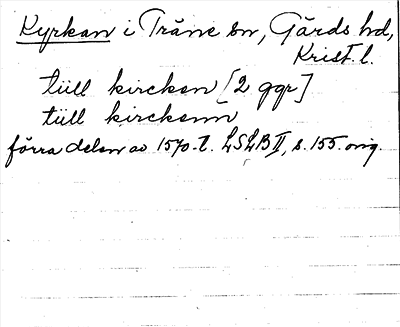 Kyrkan i Träne sn, Gärds hd,
Krist. l.
tüll kirckan [2 ggr]
tüll kirckann
förra delen av 1570-t. LSLB II, s. 155. orig.